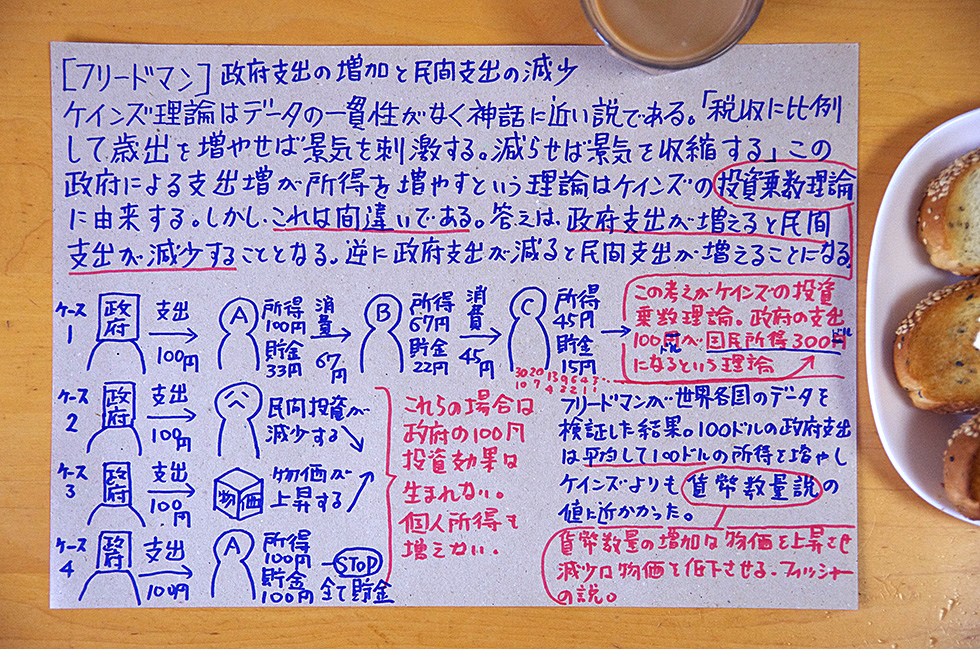 [フリードマン] 政府支出の増加と民間支出の減少
ケインズ理論はデータの一貫性がなく神話に近い説である。「税収に比例
して歳出を増やせば景気を刺激する。減らせば景気を収縮する」この
政府による支出増が所得を増やすという理論はケインズの投資乗数理論
に由来する。しかし、これは間違いである。答えは、政府支出が増えると民間
支出が減少することとなる。逆に政府支出が減ると民間支出が増えることになる
ケース1
政府
支出
100円
A
所得
100円
貯金
33円
消費
67円
B
所得
67円
貯金
22円
消費
45円
C
所得
45円
貯金
15円
この考えがケインズの投資
乗数理論。政府の支出
100ドルが国民所得300ドル
になるという理論
30 20 13 9 6 4 3…
10 7 4 3 2 1 1
ケース2
政府
支出
100円
民間投資が
減少する
ケース3
政府
支出
100円
物価
物価が
上昇する
ケース4
政府
支出
100円
A
所得
100円
貯金
100円
STOP
全て貯金
これらの場合は
政府の100円
投資効果は
生まれない。
個人所得も
増えない。
フリードマンが世界各国のデータを
検証した結果。100ドルの政府支出
は平均して100ドルの所得を増やし
ケインズよりも貨幣数量説の
値に近かかった。
貨幣数量の増加は物価を上昇させ
減少は物価を低下させる。フィッシャー
の説。